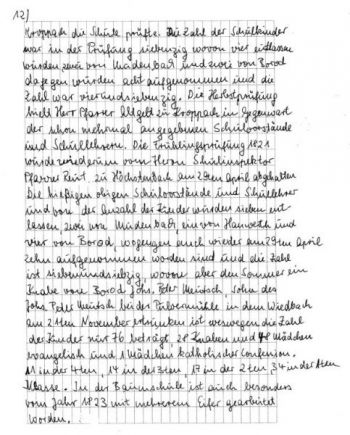 12)
Kroppach die Schule prüfte. Die Zahl der Schulkinder
war in der Prüfung siebenzig wovon vier entlassen
wurden zwei von Mündersbach und zwei von Borod
dagegen wurden acht aufgenommen und die
Zahl war vierundsiebenzig. Die Herbstprüfung
hielt Herr Pfarrer Altgelt zu Kroppach in Gegenwart
der schon mehrmal angegebenen Schulvorstände
und Schullehrern. Die Frühlingsprüfung 1821
wurde wiederum vom Herrn Schulinspektor
Pfarrer Reut. zu Höchstenbach am 29ten April abgehalten
Die hießigen obigen Schulvorstände und Schullehrer
und von der Anzahl der Kinder wurden sieben ent
lassen zwei von Mudenbach, ein von Hanwerth und
vier von Borod wogegen auch wieder am 29ten April
zehn aufgenommen worden sind und die Zahl
ist siebenundsiebzig, wovon aber den Sommer ein
Knabe von Borod Johs. Peter Meutsch, Sohn des
Johs. Peter Meutsch bei der Pulvermühle in dem Wiedbach
am 2ten November ertrunken ist weswegen die Zahl
der Kinder nur 76 beträgt, 28 Knaben und 48 Mädchen
evangelisch und 1 Mädchen katholischer Confession.
11 in der 4ten, 14 in der 3ten, 17 in der 2ten, 34 in der 1ten
Klasse. In der Baumschule ist auch besonders
vom Jahr 1823 mit mehrerem Eifer gearbeitet
worden.